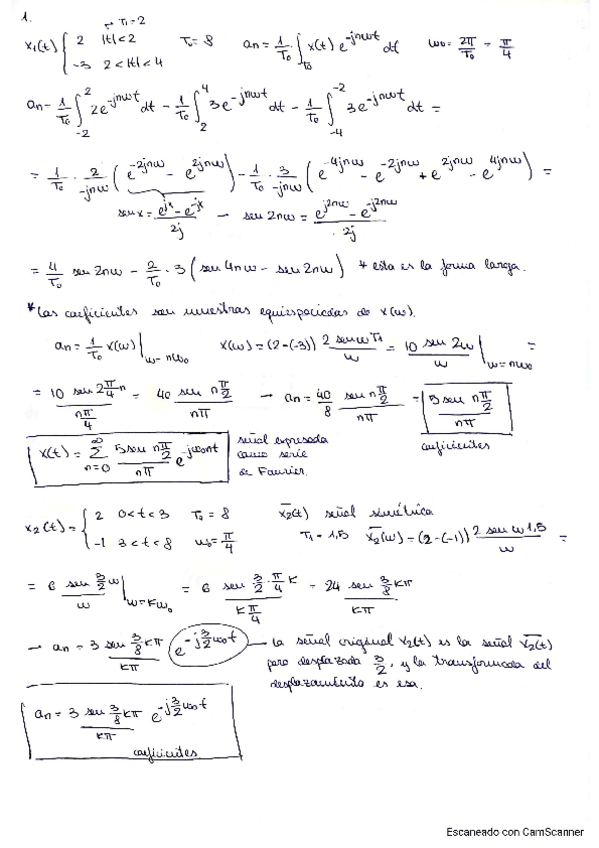 1.
T₁=2
x₁(t) { 2 |t|<2 T₀=8 an = 1/T₀ ∫_T₀ x(t) e^-jnωt dt ω₀ = 2π/T₀ = π/4
-3 2<|t|<4
an = 1/T₀ ∫_-2^2 2e^-jnωt dt - 1/T₀ ∫_2^4 3e^-jnωt dt - 1/T₀ ∫_-4^-2 3e^-jnωt dt =
= 1/T₀ · 2/-jnω (e^-2jnω - e^2jnω) - 1/T₀ · 3/-jnω (e^-4jnω - e^-2jnω + e^2jnω - e^4jnω) =
sen x = (e^jx - e^-jx)/2j → sen 2nω = (e^j2nω - e^-j2nω)/2j
= 4/T₀ sen 2nω - 2/T₀ · 3 (sen 4nω - sen 2nω) * esta es la forma larga.
*Los coeficientes son muestras equiespaciadas de x(ω).
an = 1/T₀ x(ω)|ω=nω₀ x(ω) = (2-(-3)) 2 sen ωT₁/ω = 10 sen 2ω/ω |ω=nω₀ =
= 10 sen 2π/4 n / (nπ/4) = 40 sen nπ/2 / nπ → an = 40/8 sen nπ/2 / nπ = 5 sen nπ/2 / nπ
coeficientes
x(t) = ∑_n=0^∞ 5 sen nπ/2 / nπ e^-jω₀nt señal expresada
como serie
de Fourier.
x₂(t) = { 2 0<t<3 T₀ = 8 x̄₂(t) señal simétrica
-1 3<t<8 ω₀ = π/4 T₁ = 1,5 x̄₂(ω) = (2-(-1)) 2 sen ω1,5/ω =
= 6 sen 3/2 ω / ω |ω=kω₀ = 6 sen 3/2 · π/4 k / (kπ/4) = 24 sen 3/8 kπ / kπ
→ an = 3 sen 3/8 kπ / kπ e^-j3/2 ω₀t la señal original x₂(t) es la señal x̄₂(t)
pero desplazada 3/2, y la transformada del
desplazamiento es esa.
an = 3 sen 3/8 kπ / kπ e^-j3/2 ω₀t
coeficientes
Escaneado con CamScanner